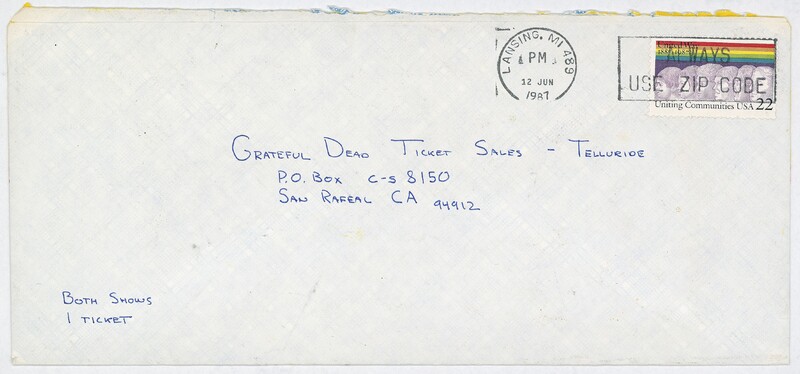 LANSING, MI 489
PM
12 JUN
1987
ALWAYS
USE ZIP CODE
United Way
Uniting Communities USA 22
GRATEFUL DEAD TICKET SALES - TELLURIDE
P.O. BOX C-S 8150
SAN RAFEAL CA 94912
BOTH SHOWS
1 TICKET